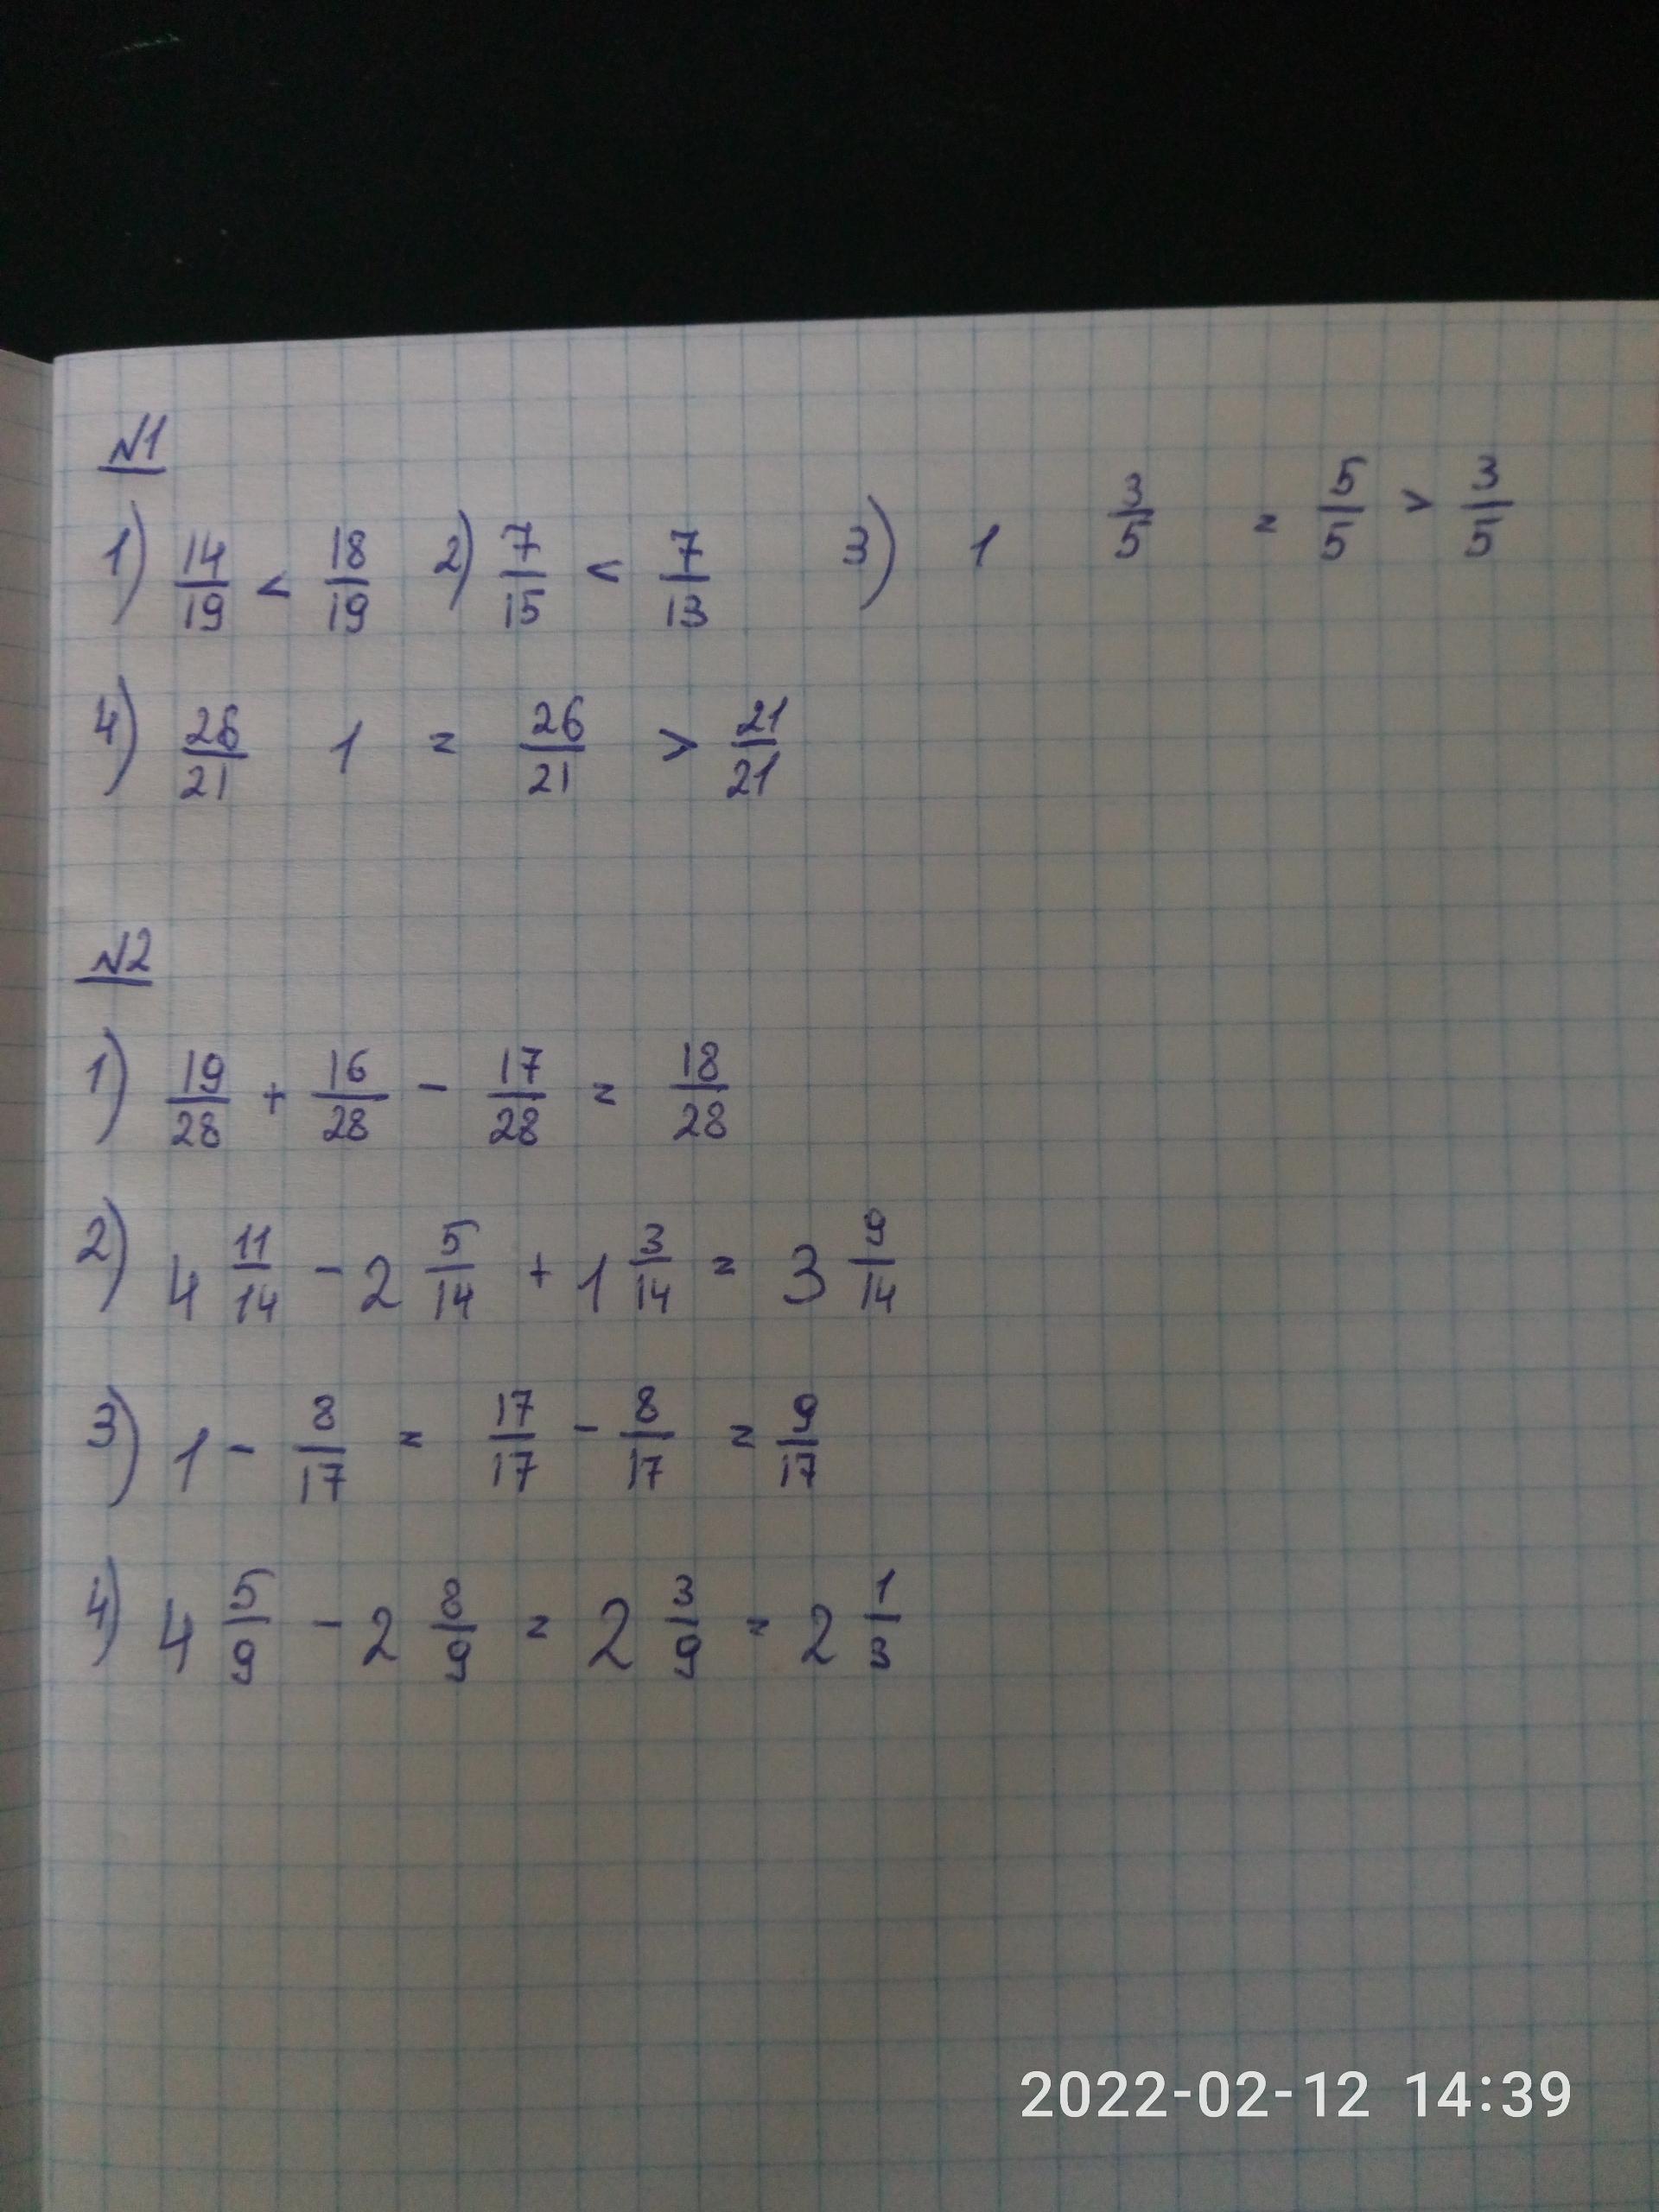 №1
1) 14/19 < 18/19 2) 7/15 < 7/13 3) 1 3/5 = 5/5 > 3/5
4) 26/21 1 = 26/21 > 21/21
№2
1) 19/28 + 16/28 - 17/28 = 18/28
2) 4 11/14 - 2 5/14 + 1 3/14 = 3 9/14
3) 1 - 8/17 = 17/17 - 8/17 = 9/17
4) 4 5/9 - 2 8/9 = 2 3/9 = 2 1/3
2022-02-12 14:39